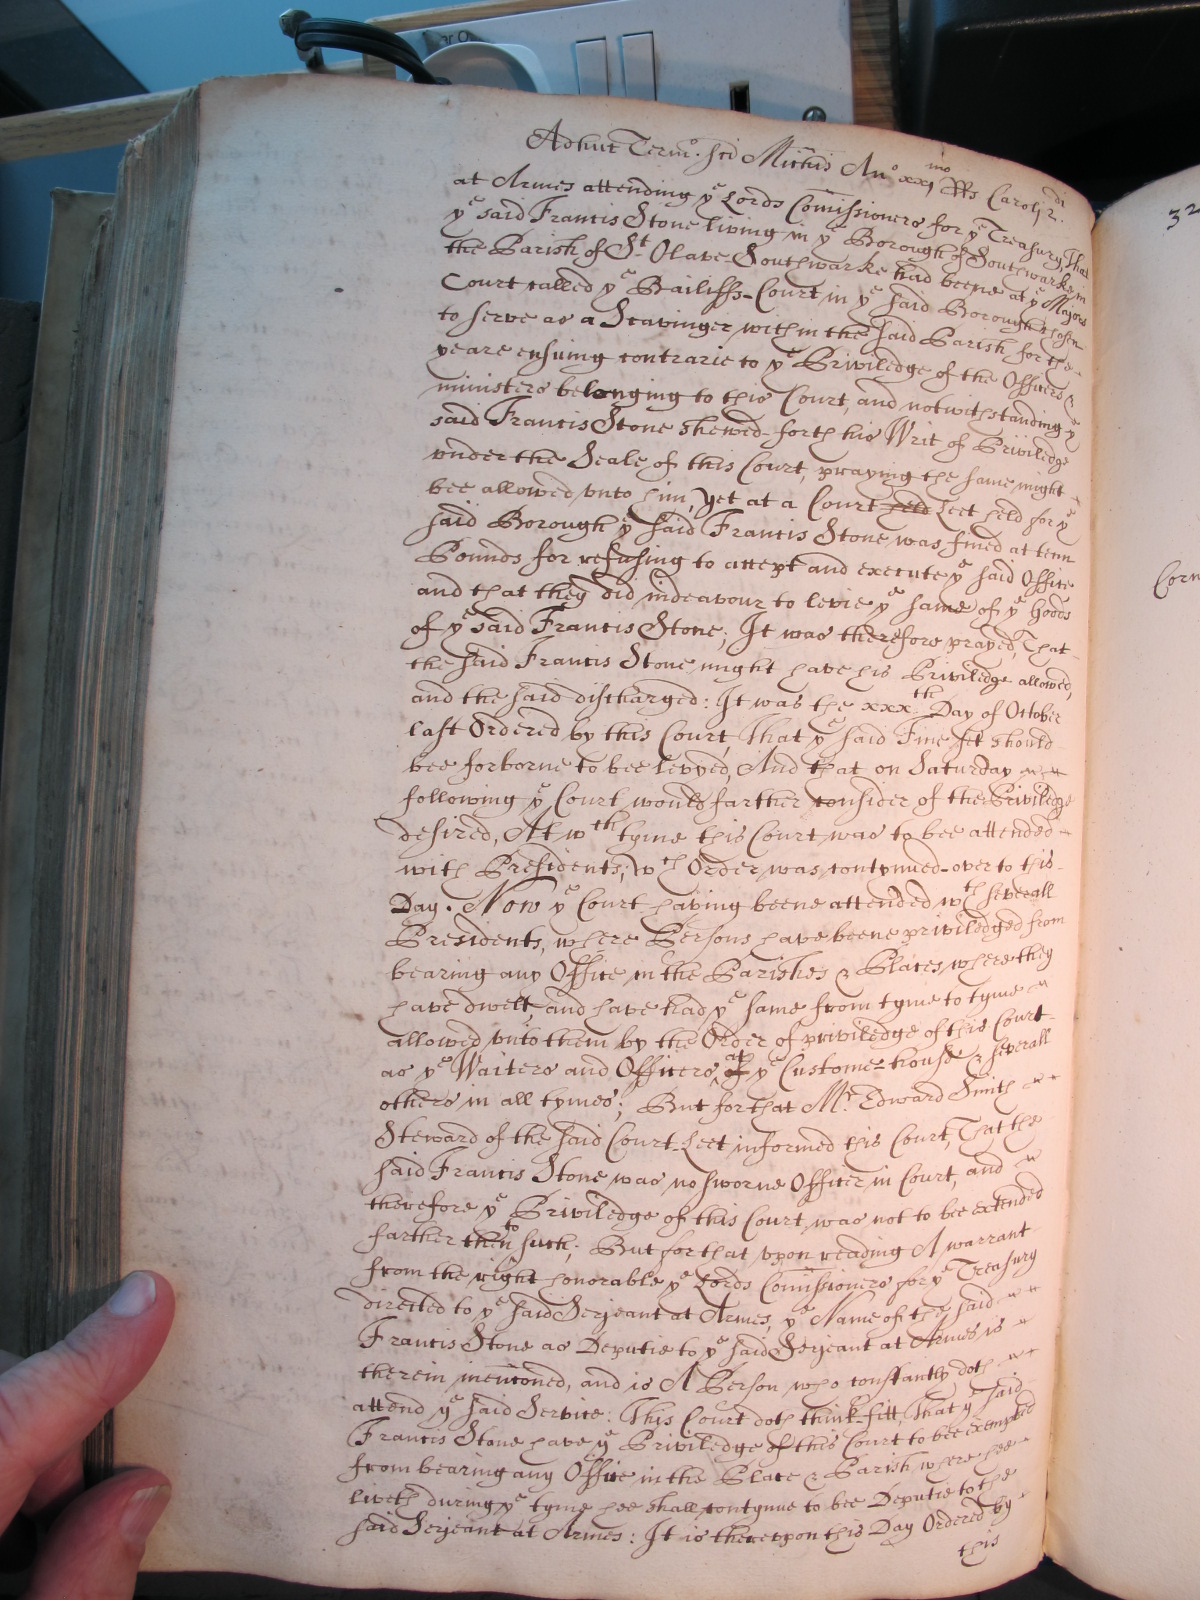 Adhuc Term.o Sci Mich̃is Ano xxjmo R̃Rs Carolj 2.di
at Armes attending ye Lords Com̃issioners for ye Treasury, That
ye said Francis Stone living in ye Borough of Southwarke in
the Parish of St. Olave Southwarke had beene at ye Majors
Court called ye Bailiffs-Court in ye said Borough chosen
to serve as a Scavinger within the said Parish for the
yeare ensuing contrarie to ye Priviledge of the Officers &
ministers belonging to this Court, and notwithstanding ye
said Francis Stone shewed-forth his Writ of Priviledge
vnder the Seale of this Court, praying the same might
bee allowed vnto him, Yet at a Court held Leet held for ye
said Borough ye said Francis Stone was fined at tenn
Pounds for refusing to accept and execute ye said Office
and that they did indeavour to levie ye same of ye Goods
of ye said Francis Stone; It was therefore prayed, That
the said Francis Stone might have his Priviledge allowed,
and the said discharged: It was the xxx.th Day of October
last Ordered by this Court, That ye said Fine set should
bee forborne to bee levyed, And that on Saturday
following ye Court would farther consider of the Priviledge
desired, At wth tyme this Court was to bee attended
with Presidents; wch Order was contynued-over to this
Day. Now ye Court having beene attended wth severall
Presidents, where Persons have beene priviledged from
bearing any Office in the Parishes & Places where they
have dwelt, and have had ye same from tyme to tyme
allowed vnto them by the Order of priviledge of this Court
as ye Waiters and Officers, at of ye Custome-house & severall
others in all tymes; But forthat Mr. Edward Smith
Steward of the said Court-Leet informed this Court, That the
said Francis Stone was no sworne Officer in Court, and
therefore ye Priviledge of this Court was not to bee extended
farther then to such; But for that vpon reading A warrant
from the right honorable ye Lords Com̃issioners for ye Treasury
directed to ye said Serjeant at Armes, ye Name of the said
Francis Stone as Deputie to ye said Serjeant at Armes is
therein mencioned, and is A Person who constantly doth
attend ye said Service: This Court doth think-fitt, That ye said
Francis Stone have ye Priviledge of this Court to bee exempted
from bearing any Office in the Place & Parish where hee
liveth during ye tyme hee shall contynue to bee Deputie to the
said Serjeant at Armes: It is therevpon this Day Ordered by
this
32
Corn